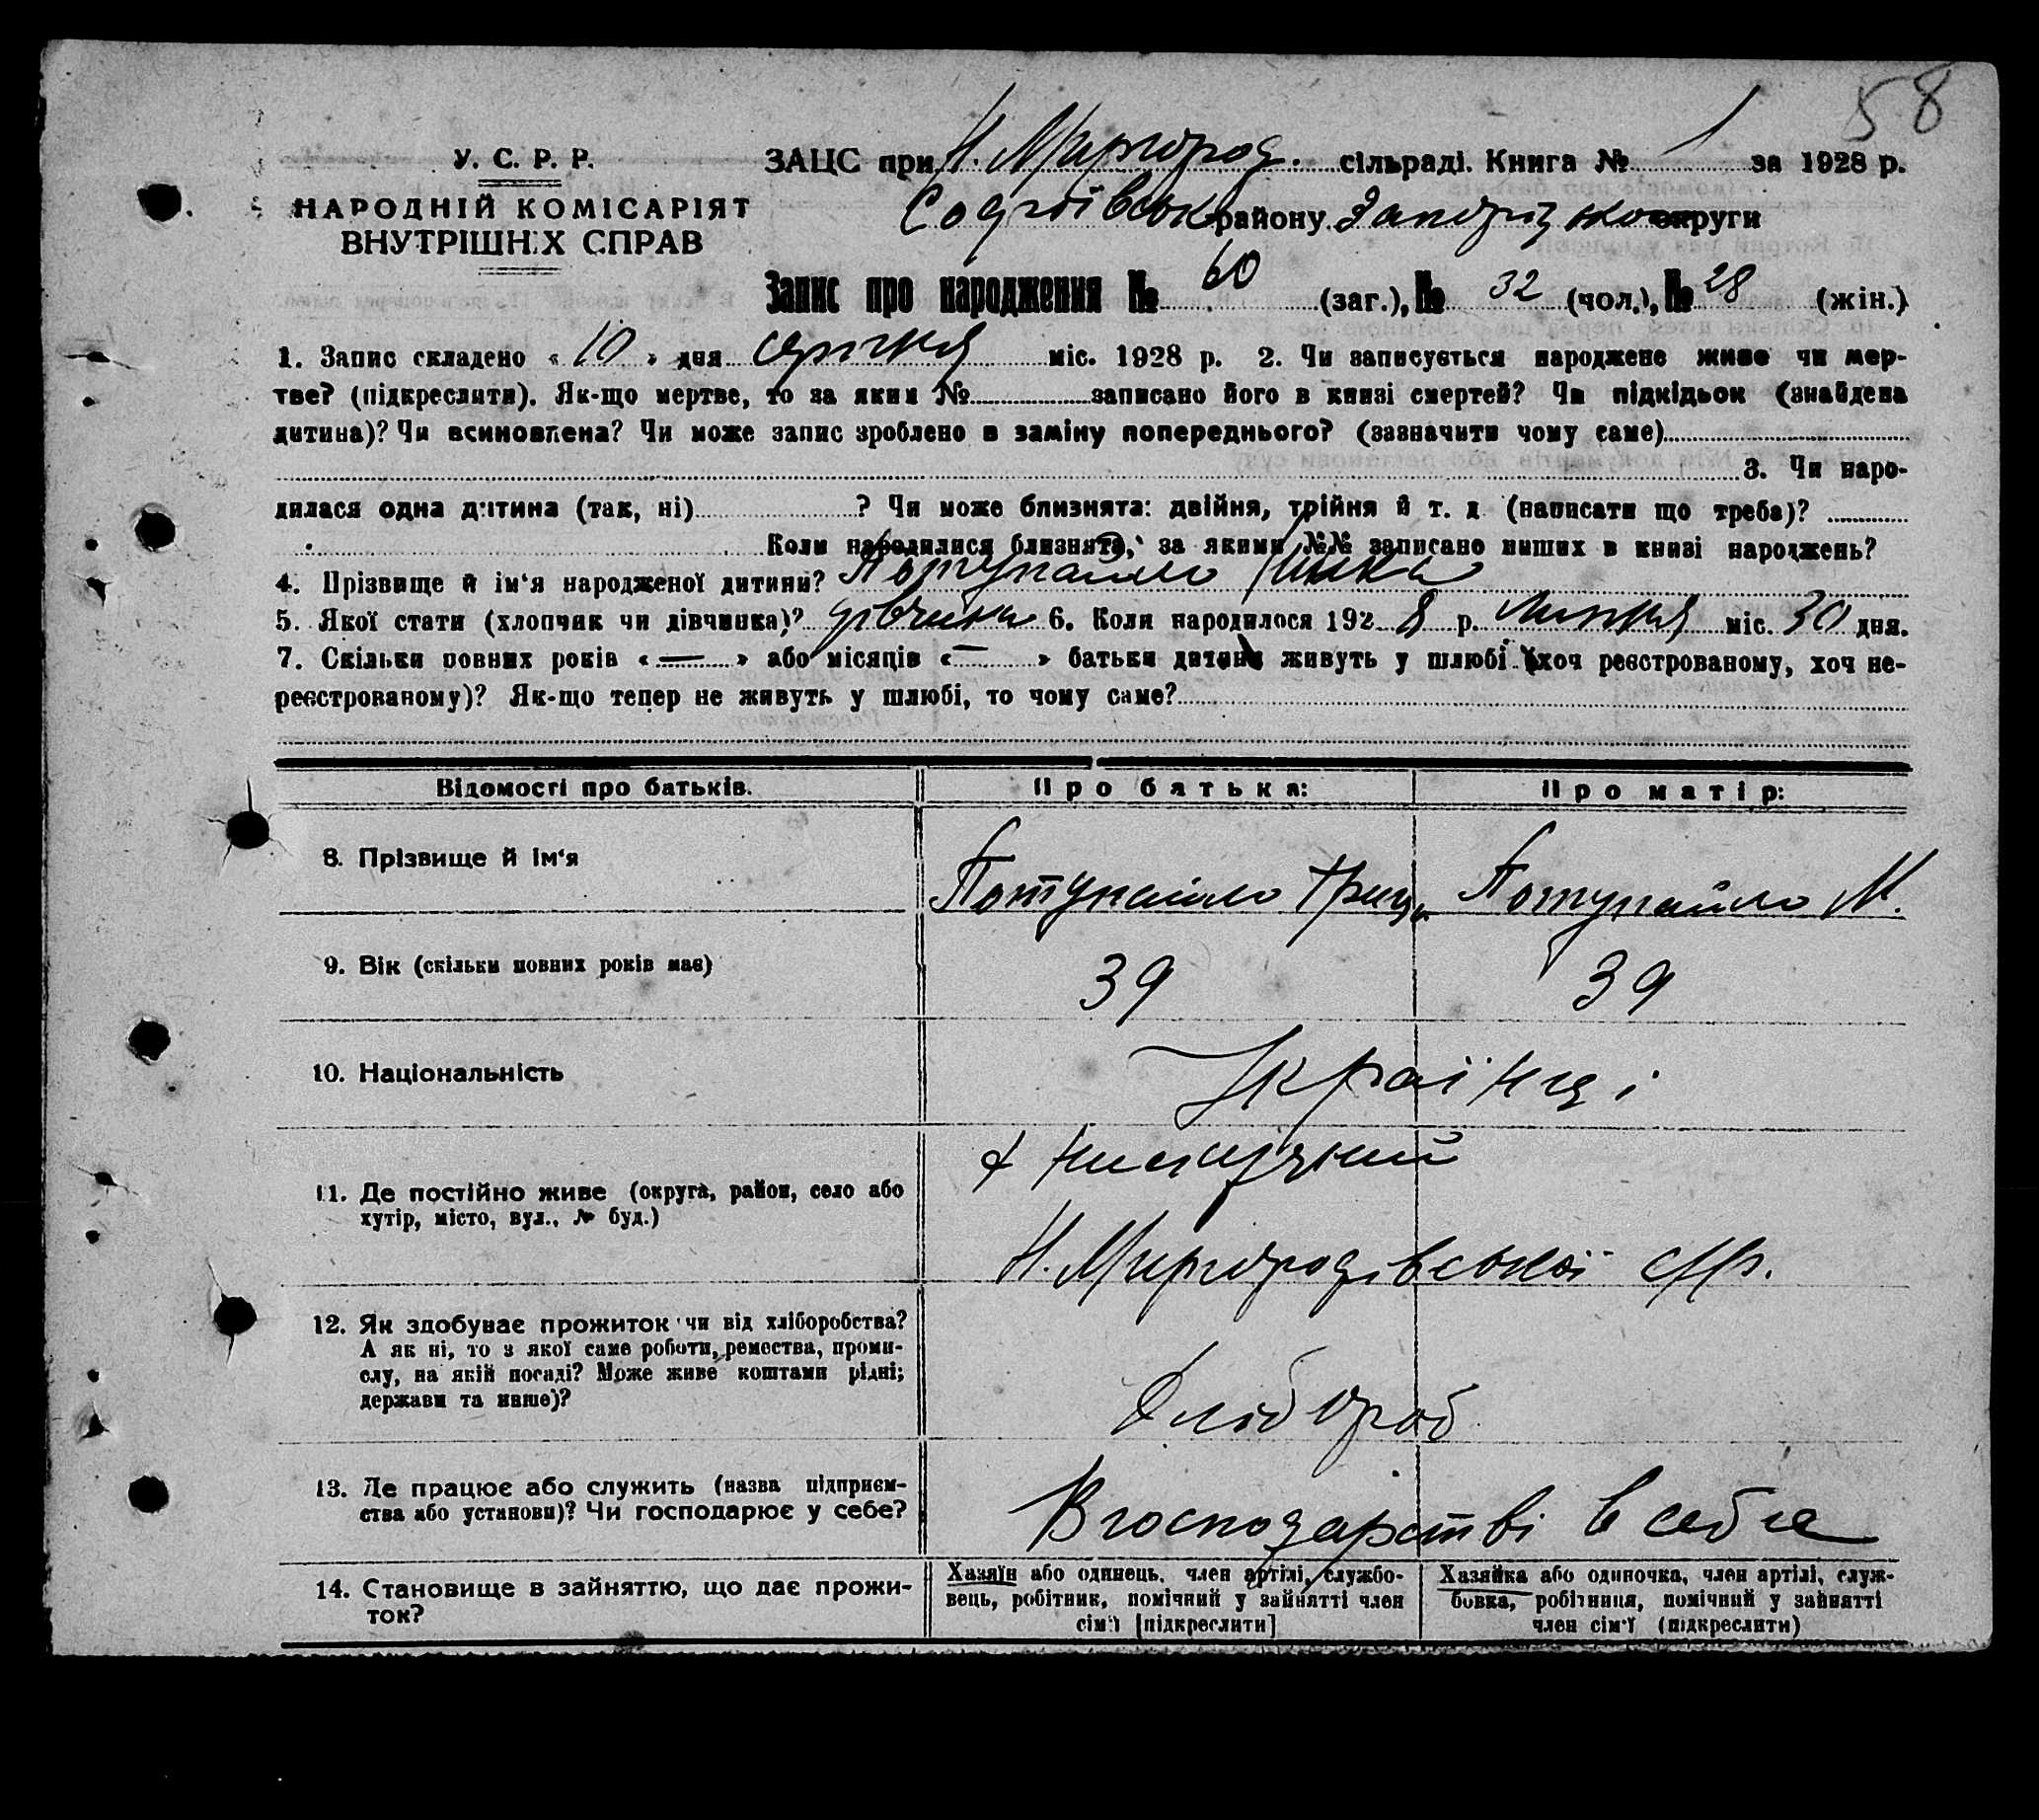 58
У. С. Р. Р.
НАРОДНІЙ КОМІСАРІЯТ
ВНУТРІШНІХ СПРАВ
ЗАЦС при Н. Миргород. сільраді. Книга № 1 за 1928 р.
Софіївськ району Запоріжської округи
Запис про народження № 60 (заг.), № 32 (чол.), № 28 (жін.)
1. Запис складено « 10 » дня серпня міс. 1928 р. 2. Чи записується народжене живе чи мер-
тве? (підкреслити). Як-що мертве, то за яким № записано його в книзі смертей? Чи підкідьок (знайдена
дитина)? Чи всиновлена? Чи може запис зроблено в заміну попереднього? (зазначити чому саме)
3. Чи наро-
дилася одна дитина (так, ні) ? Чи може близнята: двійня, трійня й т. д. (написати що треба)?
Коли народилися близнята, за якими №№ записано инших в книзі народжень?
4. Прізвище й ім‘я народженої дитини? Потупайло
5. Якої стати (хлопчик чи дівчинка)? дівчинка 6. Коли народилося 1928 р. липня міс. 30 дня.
7. Скільки повних років « — » або місяців « — » батьки дитини живуть у шлюбі (хоч реєстрованому, хоч не-
реєстрованому)? Як-що тепер не живуть у шлюбі, то чому саме?
Відомості про батьків. Про батька: Про матір:
8. Прізвище й ім‘я Потупайло Гриць Потупайло М.
9. Вік (скільки повних років має) 39 39
10. Національність Українці
11. Де постійно живе (округа, район, село або
хутір, місто, вул., № буд.)
Н. Миргородівської с/р.
12. Як здобуває прожиток чи від хліборобства?
А як ні, то з якої саме роботи, ремества, проми-
слу, на якій посаді? Може живе коштами рідні;
держави та инше)?
Хлібороб
13. Де працює або служить (назва підприєм-
ства або установи)? Чи господарює у себе?
В господарстві в себе
14. Становище в зайняттю, що дає прожи-
ток?
Хазяїн або одинець, член артілі, службо-
вець, робітник, помічний у зайнятті член
сім‘ї [підкреслити]
Хазяйка або одиночка, член артілі, служ-
бовка, робітниця, помічний у зайнятті
член сім‘ї (підкреслити)